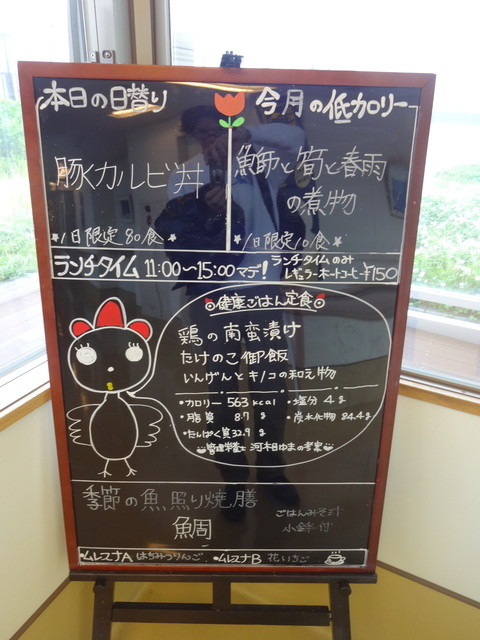 本日の日替り
豚カルビ丼
1日限定80食
今月の低カロリー
鰤と筍と春雨
の煮物
1日限定10食
ランチタイム 11:00〜15:00マデ!
ランチタイムのみ
レギュラーホットコーヒー¥150
健康ごはん定食
鶏の南蛮漬け
たけのこ御飯
いんげんとキノコの和え物
・カロリー 563kcal ・塩分 4g
・脂質 8.7g ・炭水化物 84.4g
・たんぱく質32.9g
管理栄養士 河本日ゆまの考案
季節の魚照り焼膳
鯛
ごはんみそ汁
小鉢付
・ムレスナA はちみつりんご ・ムレスナB 花いちご